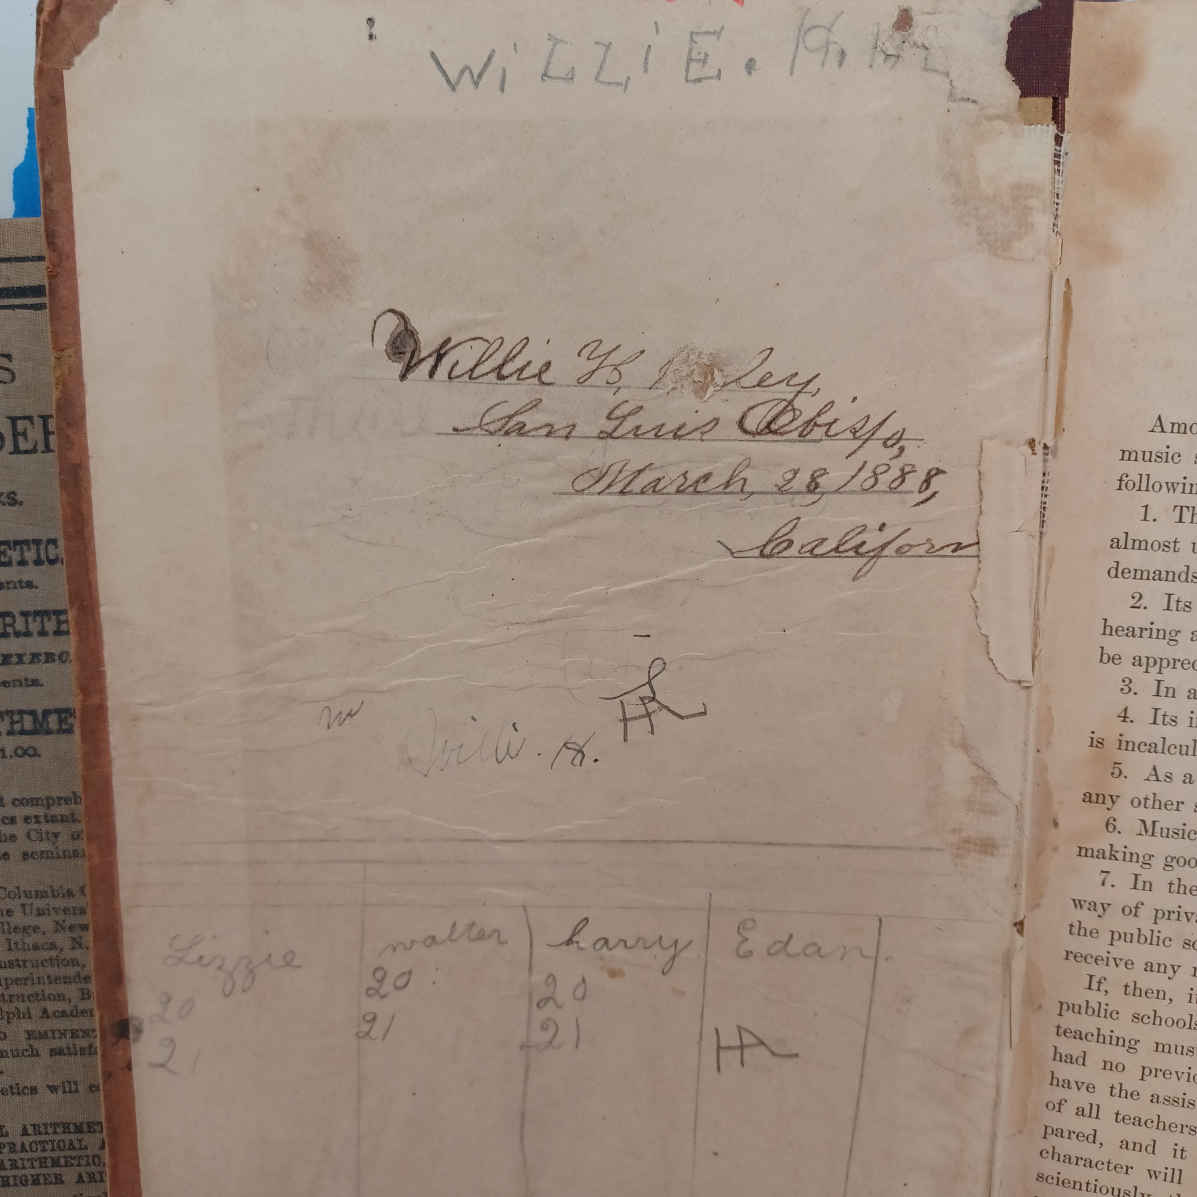 WiLLiE. H.
Willie H.
San Luis Obispo,
March, 28, 1888,
Californ
w
Willi. H.
Lizzie walter harry Edan.
20 20 20
21 21 21
S
KS.
ETIC.
ents.
RITH
ents.
THME
1.00.
t compreh
cs extant.
the City of
Columbia C
he Univers
llege, New
Ithaca, N.
nstruction,
uperintende
truction, B
lphi Academ
much satisf
etics will
L ARITHME
PRACTICAL A
ARITHMETIC,
HIGHER ARI
Amo
music s
followin
1. Th
almost u
demands
2. Its
hearing a
be apprec
3. In a
4. Its i
is incalcul
5. As a
any other s
6. Music
making goo
7. In the
way of priv
the public sc
receive any
If, then, it
public schools
teaching mus
had no previo
have the assis
of all teachers
pared, and it
character will
scientiously